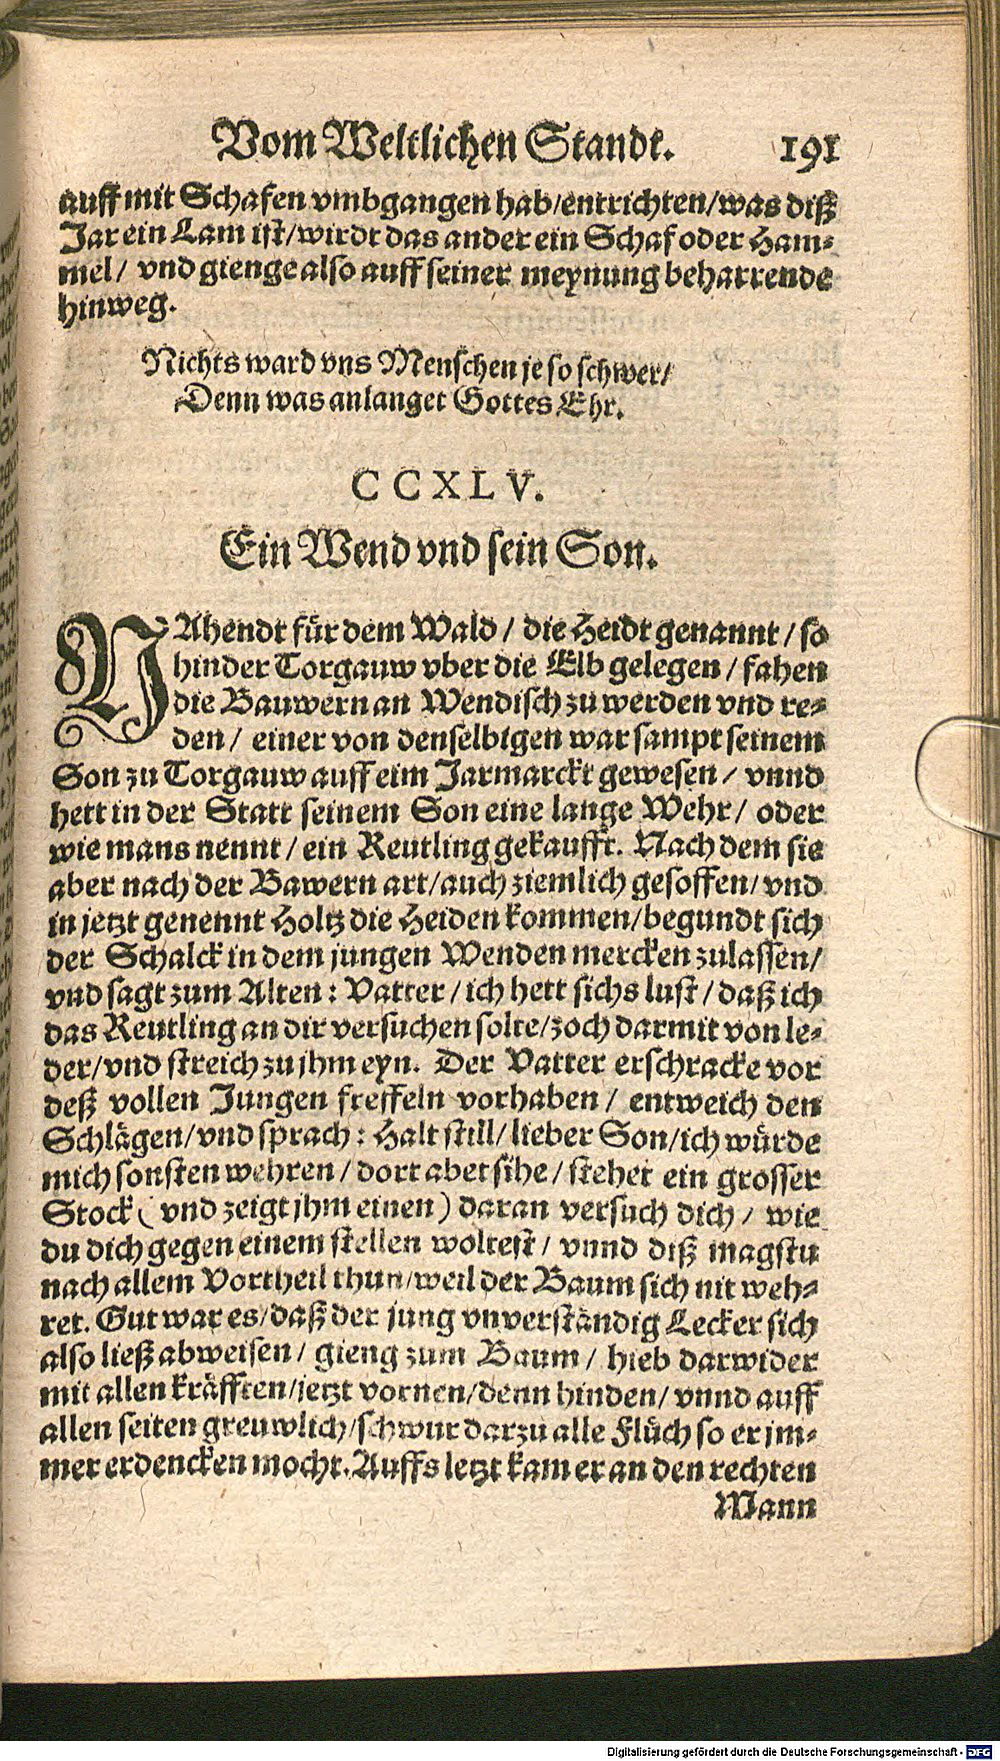 Vom Weltlichen Standt. 191
auff mit Schafen vmbgangen hab/entrichten/was diß
Jar ein Lam ist/wirdt das ander ein Schaf oder Ham-
mel/ vnd gienge also auff seiner meynung beharrende
hinweg.
Nichts ward vns Menschen je so schwer/
Denn was anlanget Gottes Ehr.
CCXLV.
Ein Wend vnd sein Son.
NAhendt für dem Wald / die Heidt genannt / so
hinder Torgauw vber die Elb gelegen / fahen
die Bauwern an Wendisch zu werden vnd re-
den / einer von denselbigen war sampt seinem
Son zu Torgauw auff eim Jarmarckt gewesen / vnnd
hett in der Statt seinem Son eine lange Wehr/ oder
wie mans nennt / ein Reutling gekaufft. Nach dem sie
aber nach der Bawern art/auch ziemlich gesoffen/vnd
in jetzt genennt Holtz die Heiden kommen/begundt sich
der Schalck in dem jungen Wenden mercken zulassen/
vnd sagt zum Alten: Vatter / ich hett sichs lust / daß ich
das Reutling an dir versuchen solte/zoch darmit von le-
der/vnd streich zu jhm eyn. Der Vatter erschracke vor
deß vollen Jungen freffeln vorhaben / entweich den
Schlägen/vnd sprach: Halt still/ lieber Son/ich würde
mich sonsten wehren / dort aber sihe / stehet ein grosser
Stock ( vnd zeigt jhm einen) daran versuch dich / wie
du dich gegen einem stellen woltest / vnnd diß magstu
nach allem Vortheil thun/weil der Baum sich nit weh-
ret. Gut war es/daß der jung vnverständig Lecker sich
also ließ abweisen / gieng zum Baum / hieb darwider
mit allen kräfften/jetzt vornen/denn hinden/ vnnd auff
allen seiten greuwlich/schwur darzu alle Flüch so er jm-
mer erdencken mocht. Auffs letzt kam er an den rechten
Mann
Digitalisierung gefördert durch die Deutsche Forschungsgemeinschaft - DFG